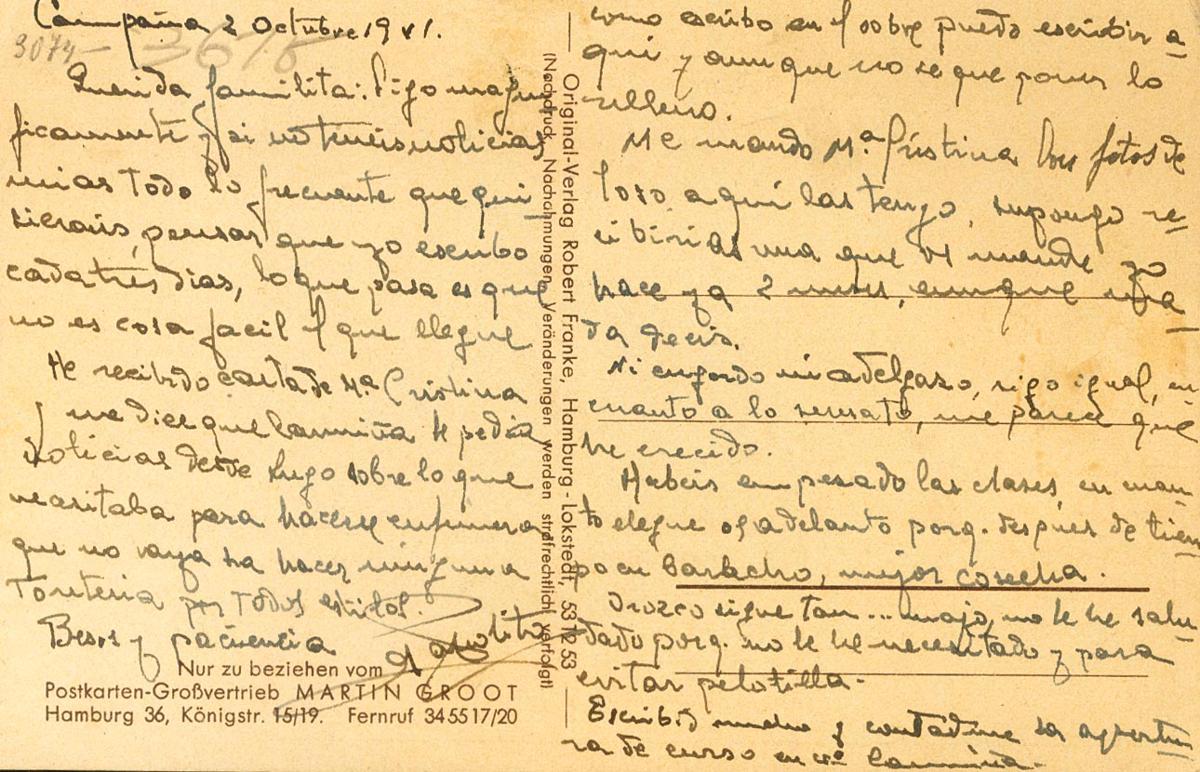 Campaña 2 Octubre 1941.
3074 - 3676
Querida familita: Sigo magní
ficamente y si no teneis noticias
mias todo lo frecuente que qui-
sierais, pensar que yo escribo
cada tres dias, lo que pasa es que
no es cosa facil el que llegue
He recibido carta de Mª Cristina
y me dice que la niña le pedia
noticias desde Lugo sobre lo que
necesitaba para hacerse enfermera
que no vaya ha hacer ninguna
Tonteria por Todos estilos.
Besos y paciencia
Nur zu beziehen vom
Postkarten-Großvertrieb MARTIN GROOT
Hamburg 36, Königstr. 15/19. Fernruf 34 55 17/20
Original-Verlag Robert Franke, Hamburg-Lokstedt, 53 12 53
(Nachdruck, Nachahmungen, Veränderungen werden strafrechtlich verfolgt)
como escribo en el sobre puedo escribir a
qui y aunque no se que poner lo
relleno.
Me mando Mª Cristina las fotos de
Toro aqui las tengo, supongo re-
cibiriais una que os mande yo
hace ya 2 meses, aunque na
da decis.
Ni engordo ni adelgazo, sigo igual, en
cuanto a lo sensato, me parece que
he crecido.
Habeis empezado las clases, en cuan-
to llegue os adelanto porq. despues de tiem
po en barbecho, mejor cosecha.
Orozco sigue tan... majo, no le he salu-
dado porq. no le he necesitado y para
evitar pelotilla.
Escribid mucho y contadme la apertu
ra de curso en la niña.